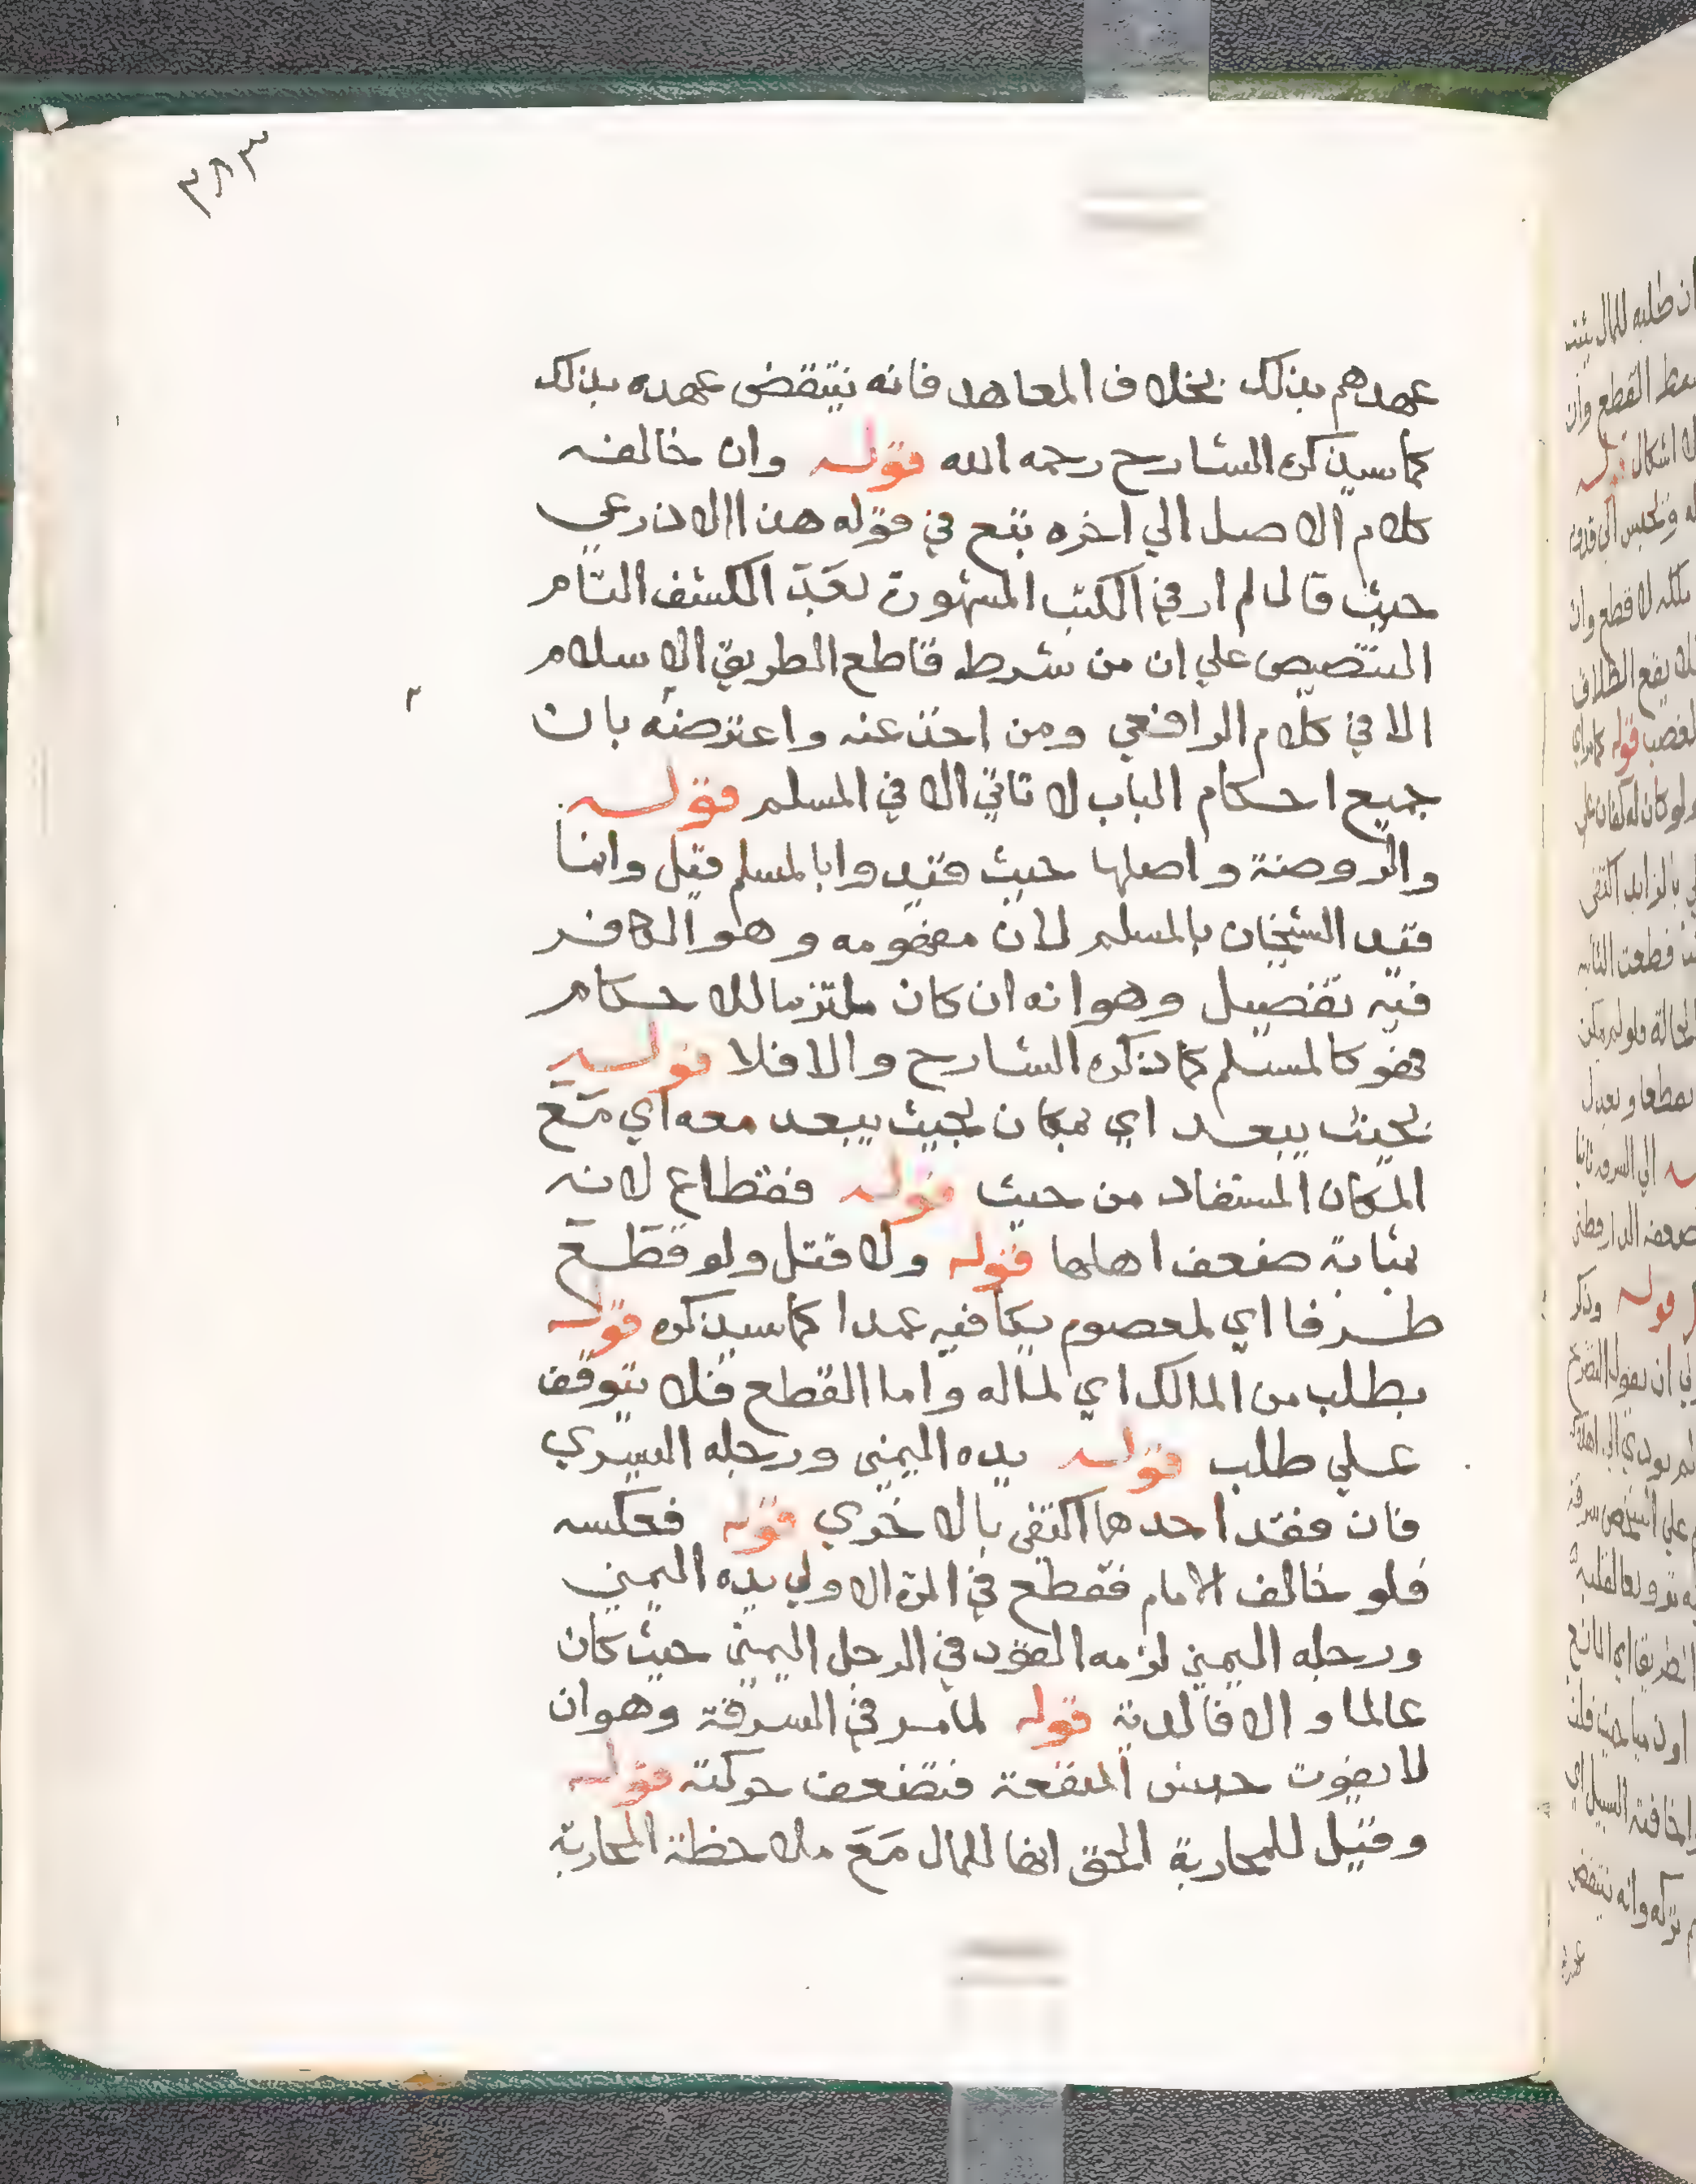 ٣٨٣
عهدهم بذلك بخلاف المعاهد فانه ينتقض عهده بذلك
كما سيذكره الشارح رحمه الله قوله وان خالفه
كلام الاصل الي اخره بتبع في قوله هذا الاذرعي
حيث قال لم ار في الكتب المشهورة بَعَدَ الكشف التام
التنصيص علي ان من شرط قاطع الطريق الاسلام
الا في كلام الرافعي ومن اخذ عنه واعترضه بان
جميع احكام الباب لا تاتي الا في المسلم قوله
والروضة واصلها حيث قيدوا بالمسلم قيل وانما
قيد الشيخان بالمسلم لان مفهومه وهو الكافر
فيه تفصيل وهو انه ان كان ملتزما للاحكام
فهو كالمسلم كما ذكره الشارح والا فلا قوله
بحيث يبعد اي بمكان بحيث يبعد معه اي مَعَ
المكان المستفاد من حيث قوله فقطاع لانه
بمثابة ضعف اهلها قوله ولا قتل ولو قطَعَ
طرفا اي لمعصوم يكافيه عمدا كما سيذكره قوله
بطلب من المالك اي لماله واما القطع فلا يتوقف
علي طلب قوله يده اليمني ورجله اليسري
فان فقد احدهما اكتفي بالاخري قوله فعكسه
فلو خالف الامام فقطع في المرة الاولي يده اليمني
ورجله اليمني لزمه القود في الرجل اليمني حيث كان
عالما والا فالدية قوله لما مر في السرقة وهو ان
لا يفوت جنس المنفعة فتضعف حركته قوله
وقيل للمحاربة الحق انها للمال مَعَ ملاحظة المحاربة